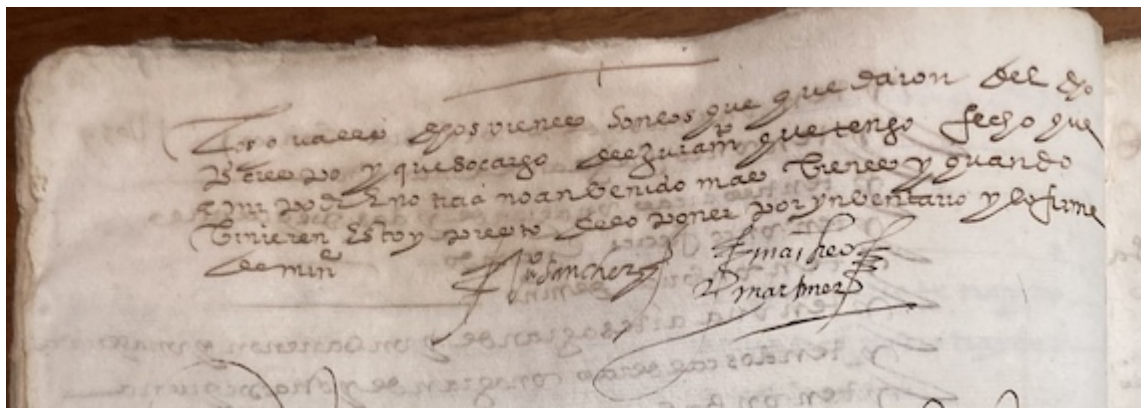 quales vienes son los que quedaron del dho
y que so cargo del juramto que tengo fecho que
a mi poder e no tiçia no an benido mas bienes y quando
binieren estoy presto de los poner por ynbentario y lo firme
de mi nre
Sanchez matheo
martinez